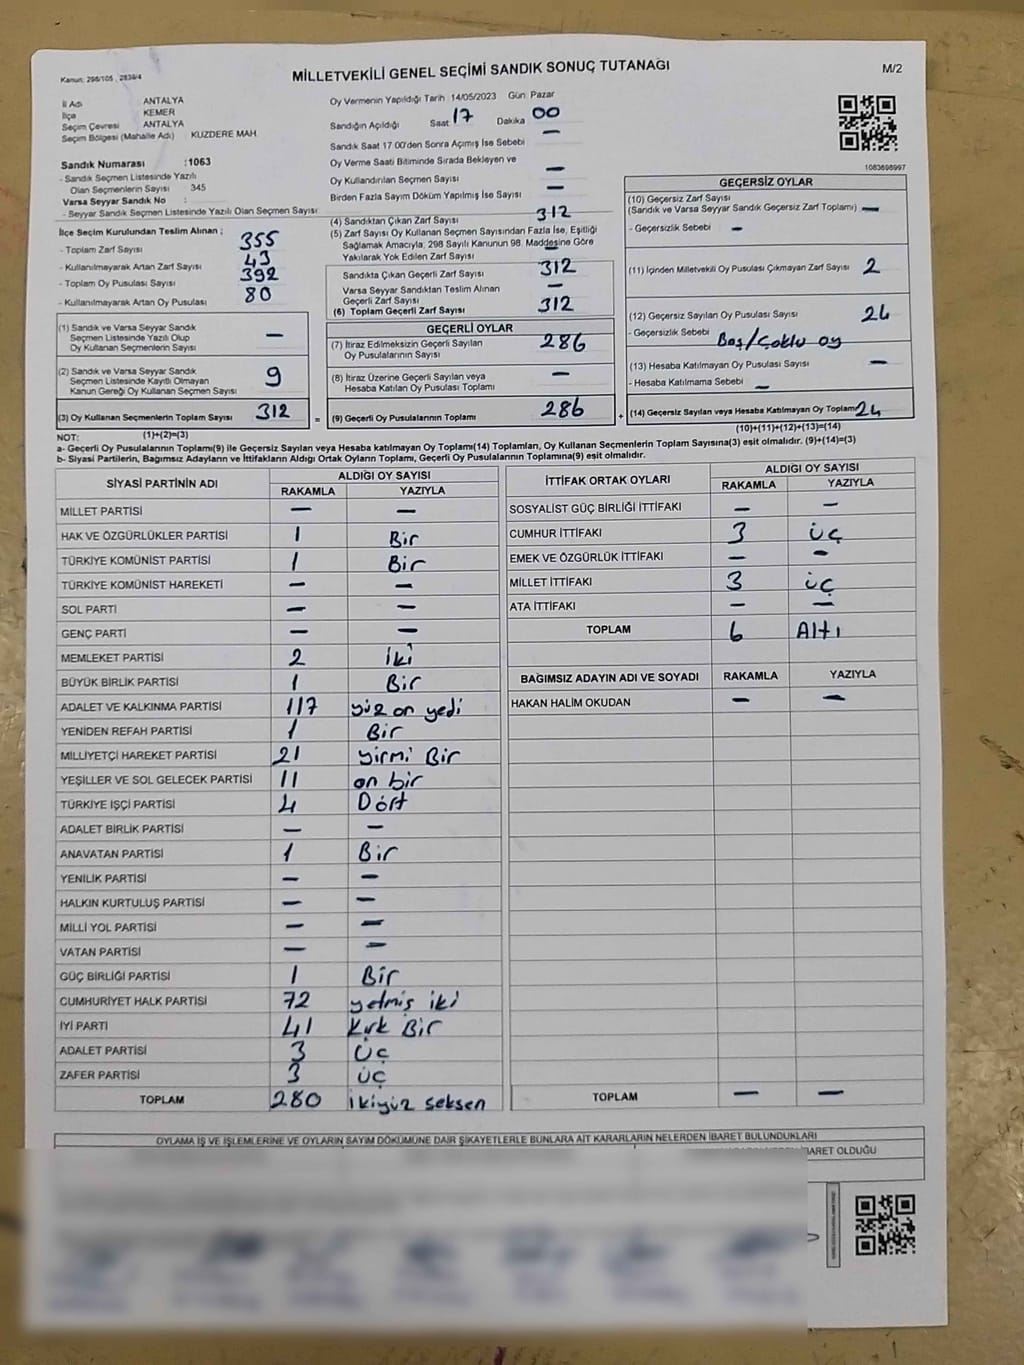 Kanun: 298/105 , 2839/4
MİLLETVEKİLİ GENEL SEÇİMİ SANDIK SONUÇ TUTANAĞI
M/2
İl Adı ANTALYA
İlçe KEMER
Seçim Çevresi ANTALYA
Seçim Bölgesi (Mahalle Adı) KUZDERE MAH.
Sandık Numarası :1063
- Sandık Seçmen Listesinde Yazılı
Olan Seçmenlerin Sayısı 345
Varsa Seyyar Sandık No :
- Seyyar Sandık Seçmen Listesinde Yazılı Olan Seçmen Sayısı
İlçe Seçim Kurulundan Teslim Alınan ;
- Toplam Zarf Sayısı 355
- Kullanılmayarak Artan Zarf Sayısı 43
- Toplam Oy Pusulası Sayısı 392
- Kullanılmayarak Artan Oy Pusulası 80
(1) Sandık ve Varsa Seyyar Sandık
Seçmen Listesinde Yazılı Olup
Oy Kullanan Seçmenlerin Sayısı –
(2) Sandık ve Varsa Seyyar Sandık
Seçmen Listesinde Kayıtlı Olmayan
Kanun Gereği Oy Kullanan Seçmen Sayısı 9
(3) Oy Kullanan Seçmenlerin Toplam Sayısı 312 =
(1)+(2)=(3)
Oy Vermenin Yapıldığı Tarih :14/05/2023 Gün: Pazar
Sandığın Açıldığı Saat 17 Dakika 00
Sandık Saat 17.00'den Sonra Açımış İse Sebebi –
Oy Verme Saati Bitiminde Sırada Bekleyen ve
Oy Kullandırılan Seçmen Sayısı –
Birden Fazla Sayım Döküm Yapılmış İse Sayısı –
(4) Sandıktan Çıkan Zarf Sayısı 312
(5) Zarf Sayısı Oy Kullanan Seçmen Sayısından Fazla İse, Eşitliği
Sağlamak Amacıyla, 298 Sayılı Kanunun 98. Maddesine Göre
Yakılarak Yok Edilen Zarf Sayısı –
Sandıkta Çıkan Geçerli Zarf Sayısı 312
Varsa Seyyar Sandıktan Teslim Alınan
Geçerli Zarf Sayısı –
(6) Toplam Geçerli Zarf Sayısı 312
GEÇERLİ OYLAR
(7) İtiraz Edilmeksizin Geçerli Sayılan
Oy Pusulalarının Sayısı 286
(8) İtiraz Üzerine Geçerli Sayılan veya
Hesaba Katılan Oy Pusulası Toplamı –
(9) Geçerli Oy Pusulalarının Toplamı 286 +
1083698997
GEÇERSİZ OYLAR
(10) Geçersiz Zarf Sayısı
(Sandık ve Varsa Seyyar Sandık Geçersiz Zarf Toplamı) –
- Geçersizlik Sebebi –
(11) İçinden Milletvekili Oy Pusulası Çıkmayan Zarf Sayısı 2
(12) Geçersiz Sayılan Oy Pusulası Sayısı 24
- Geçersizlik Sebebi Boş/Çoklu oy
(13) Hesaba Katılmayan Oy Pusulası Sayısı –
- Hesaba Katılmama Sebebi –
(14) Geçersiz Sayılan veya Hesaba Katılmayan Oy Toplamı 24
(10)+(11)+(12)+(13)=(14)
NOT:
a- Geçerli Oy Pusulalarının Toplamı(9) ile Geçersiz Sayılan veya Hesaba katılmayan Oy Toplamı(14) Toplamları, Oy Kullanan Seçmenlerin Toplam Sayısına(3) eşit olmalıdır. (9)+(14)=(3)
b- Siyasi Partilerin, Bağımsız Adayların ve İttifakların Aldığı Ortak Oyların Toplamı, Geçerli Oy Pusulalarının Toplamına(9) eşit olmalıdır.
SİYASİ PARTİNİN ADI ALDIĞI OY SAYISI
RAKAMLA YAZIYLA
MİLLET PARTİSİ – –
HAK VE ÖZGÜRLÜKLER PARTİSİ 1 Bir
TÜRKİYE KOMÜNİST PARTİSİ 1 Bir
TÜRKİYE KOMÜNİST HAREKETİ – –
SOL PARTİ – –
GENÇ PARTİ – –
MEMLEKET PARTİSİ 2 iki
BÜYÜK BİRLİK PARTİSİ 1 Bir
ADALET VE KALKINMA PARTİSİ 117 yüz on yedi
YENİDEN REFAH PARTİSİ 1 Bir
MİLLİYETÇİ HAREKET PARTİSİ 21 yirmi Bir
YEŞİLLER VE SOL GELECEK PARTİSİ 11 on bir
TÜRKİYE İŞÇİ PARTİSİ 4 Dört
ADALET BİRLİK PARTİSİ – –
ANAVATAN PARTİSİ 1 Bir
YENİLİK PARTİSİ – –
HALKIN KURTULUŞ PARTİSİ – –
MİLLİ YOL PARTİSİ – –
VATAN PARTİSİ – –
GÜÇ BİRLİĞİ PARTİSİ 1 Bir
CUMHURİYET HALK PARTİSİ 72 yetmiş iki
İYİ PARTİ 41 Kırk Bir
ADALET PARTİSİ 3 Üç
ZAFER PARTİSİ 3 üç
TOPLAM 280 ikiyüz seksen
İTTİFAK ORTAK OYLARI ALDIĞI OY SAYISI
RAKAMLA YAZIYLA
SOSYALİST GÜÇ BİRLİĞİ İTTİFAKI – –
CUMHUR İTTİFAKI 3 üç
EMEK VE ÖZGÜRLÜK İTTİFAKI – –
MİLLET İTTİFAKI 3 üç
ATA İTTİFAKI – –
TOPLAM 6 Altı
BAĞIMSIZ ADAYIN ADI VE SOYADI RAKAMLA YAZIYLA
HAKAN HALİM OKUDAN – –
TOPLAM – –
OYLAMA İŞ VE İŞLEMLERİNE VE OYLARIN SAYIM DÖKÜMÜNE DAİR ŞİKAYETLERLE BUNLARA AİT KARARLARIN NELERDEN İBARET BULUNDUKLARI
İBARET OLDUĞU